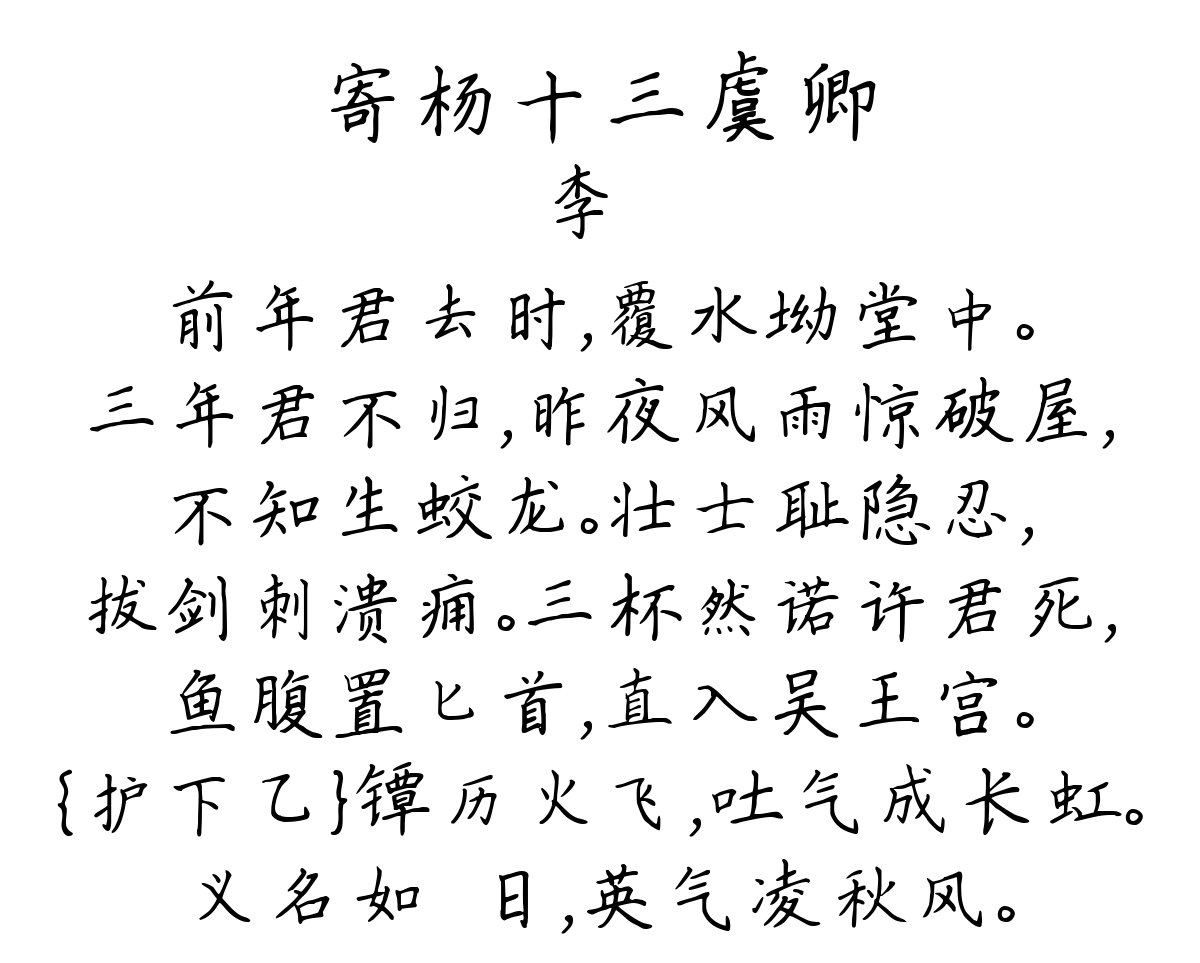 寄杨十三虞卿
李
前年君去时,覆水坳堂中。
三年君不归,昨夜风雨惊破屋,
不知生蛟龙。壮士耻隐忍,
拔剑刺溃痈。三杯然诺许君死,
鱼腹置匕首,直入吴王宫。
{护下乙}镡历火飞,吐气成长虹。
义名如 日,英气凌秋风。